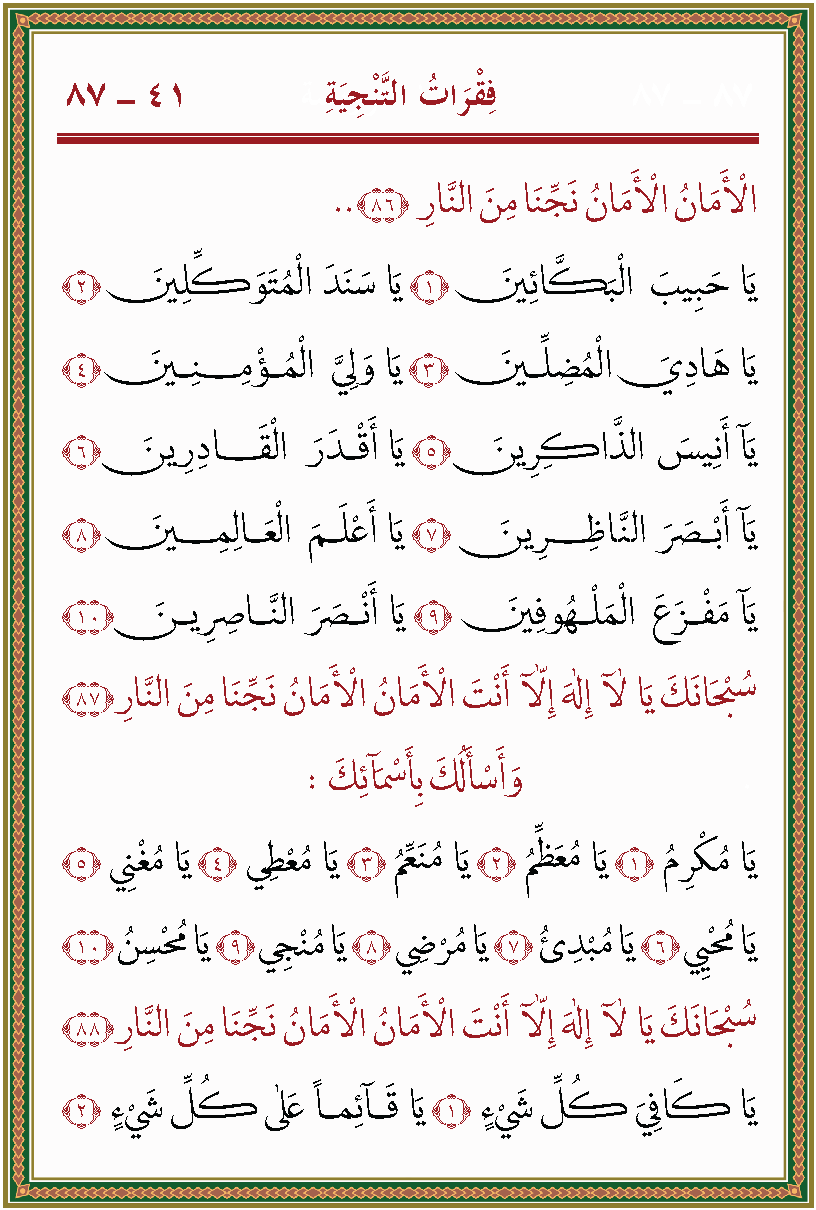 فِقْرَاتُ التَّنْجِيَةِ ٤١ - ٨٧
الْأَمَانُ الْأَمَانُ نَجِّنَا مِنَ النَّارِ ﴿٨٦﴾..
يَا حَبِيبَ الْبَكَّائِينَ ﴿١﴾ يَا سَنَدَ الْمُتَوَكِّلِينَ ﴿٢﴾
يَا هَادِيَ الْمُضِلِّينَ ﴿٣﴾ يَا وَلِيَّ الْمُؤْمِنِينَ ﴿٤﴾
يَآ أَنِيسَ الذَّاكِرِينَ ﴿٥﴾ يَا أَقْدَرَ الْقَادِرِينَ ﴿٦﴾
يَآ أَبْصَرَ النَّاظِرِينَ ﴿٧﴾ يَا أَعْلَمَ الْعَالِمِينَ ﴿٨﴾
يَآ مَفْزَعَ الْمَلْهُوفِينَ ﴿٩﴾ يَا أَنْصَرَ النَّاصِرِينَ ﴿١٠﴾
سُبْحَانَكَ يَا لَآ إِلٰهَ إِلَّآ أَنْتَ الْأَمَانُ الْأَمَانُ نَجِّنَا مِنَ النَّارِ ﴿٨٧﴾
وَأَسْأَلُكَ بِأَسْمَآئِكَ :
يَا مُكْرِمُ ﴿١﴾ يَا مُعَظِّمُ ﴿٢﴾ يَا مُنَعِّمُ ﴿٣﴾ يَا مُعْطِي ﴿٤﴾ يَا مُغْنِي ﴿٥﴾
يَا مُحْيِي ﴿٦﴾ يَا مُبْدِئُ ﴿٧﴾ يَا مُرْضِي ﴿٨﴾ يَا مُنْجِي ﴿٩﴾ يَا مُحْسِنُ ﴿١٠﴾
سُبْحَانَكَ يَا لَآ إِلٰهَ إِلَّآ أَنْتَ الْأَمَانُ الْأَمَانُ نَجِّنَا مِنَ النَّارِ ﴿٨٨﴾
يَا كَافِيَ كُلِّ شَيْءٍ ﴿١﴾ يَا قَآئِماً عَلٰى كُلِّ شَيْءٍ ﴿٢﴾